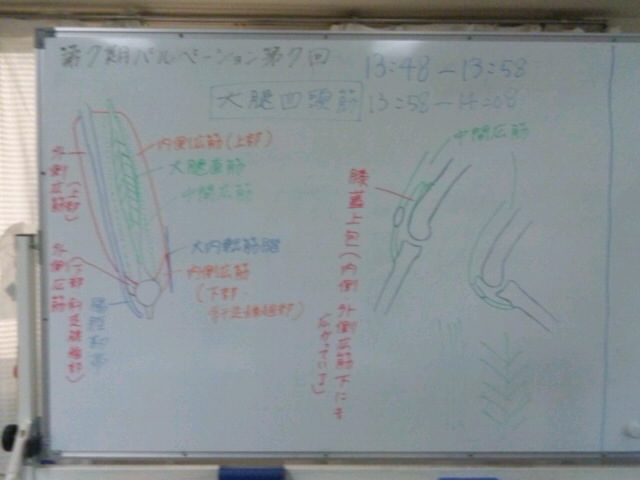 第7期パルペーション第7回
13:48-13:58
大腿四頭筋
13:58-14:08
内側広筋(上部)
大腿直筋
中間広筋
外側広筋(上部)
大内転筋腱
内側広筋
(下部
外側広筋
中間広筋
膝蓋上包(内側
外側広筋下にも
広がっている)